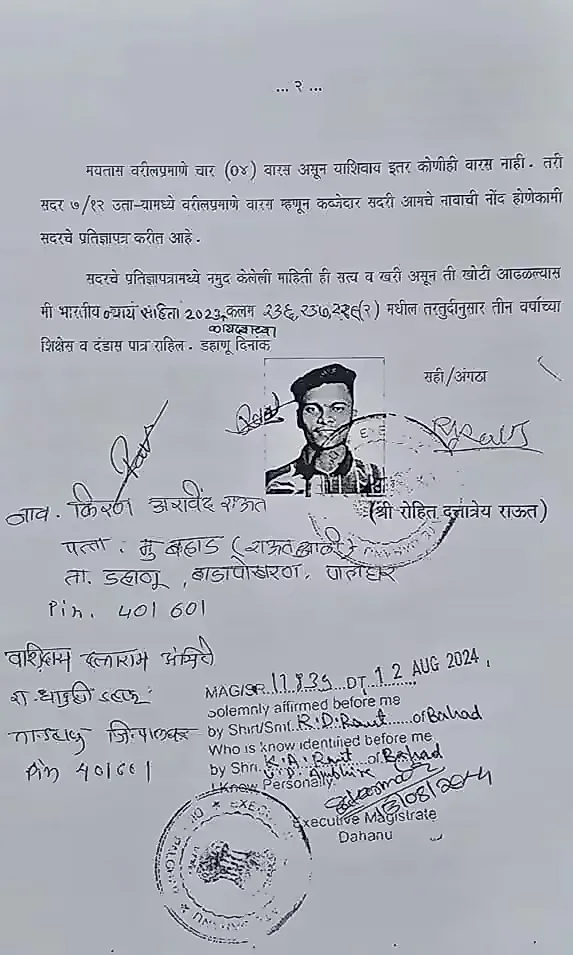 ... २ ...
मयतास वरीलप्रमाणे चार (०४) वारस असून याशिवाय इतर कोणीही वारस नाही. तरी
सदर ७/१२ उता-यामध्ये वरीलप्रमाणे वारस म्हणून कब्जेदार सदरी आमचे नावाची नोंद होणेकामी
सदरचे प्रतिज्ञापत्र करीत आहे.
सदरचे प्रतिज्ञापत्रामध्ये नमुद केलेली माहिती ही सत्य व खरी असून ती खोटी आढळल्यास
मी भारतीय न्याय संहिता 2023, कलम २३६, २३७, २२९(२) मधील तरतुदीनुसार तीन वर्षाच्या
कायद्याच्या
शिक्षेस व दंडास पात्र राहिल. डहाणू दिनांक
सही/अंगठा
(श्री रोहित दत्तात्रेय राऊत)
नाव. किरण अरविंद राऊत
पत्ता. मु
ता. डहाणू, पालघर
Pin. 401 601
MAGISR 11835 DT. 12 AUG 2024
Solemnly affirmed before me
by Shri/Smt. R.D. Raut of Barhad
Who is know identified before me
by Shri. K.A. Raut of Barhad
I Know Personally.
13/08/2024
Executive Magistrate
Dahanu
Pin 401601